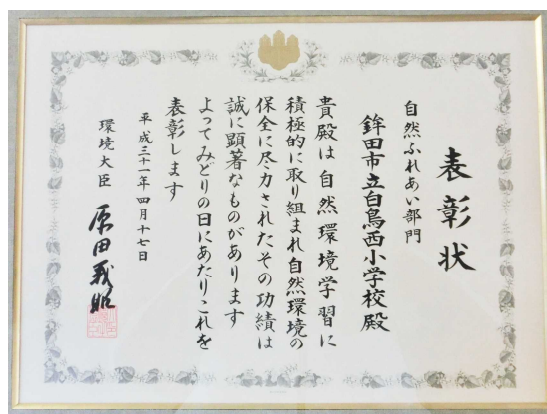 表彰状
自然ふれあい部門
鉾田市立白鳥西小学校殿
貴殿は自然環境学習に
積極的に取り組まれ自然環境の
保全に尽力されたその功績は
誠に顕著なものがあります
よってみどりの日にあたりこれを
表彰します
平成三十一年四月十七日
環境大臣 原田義昭